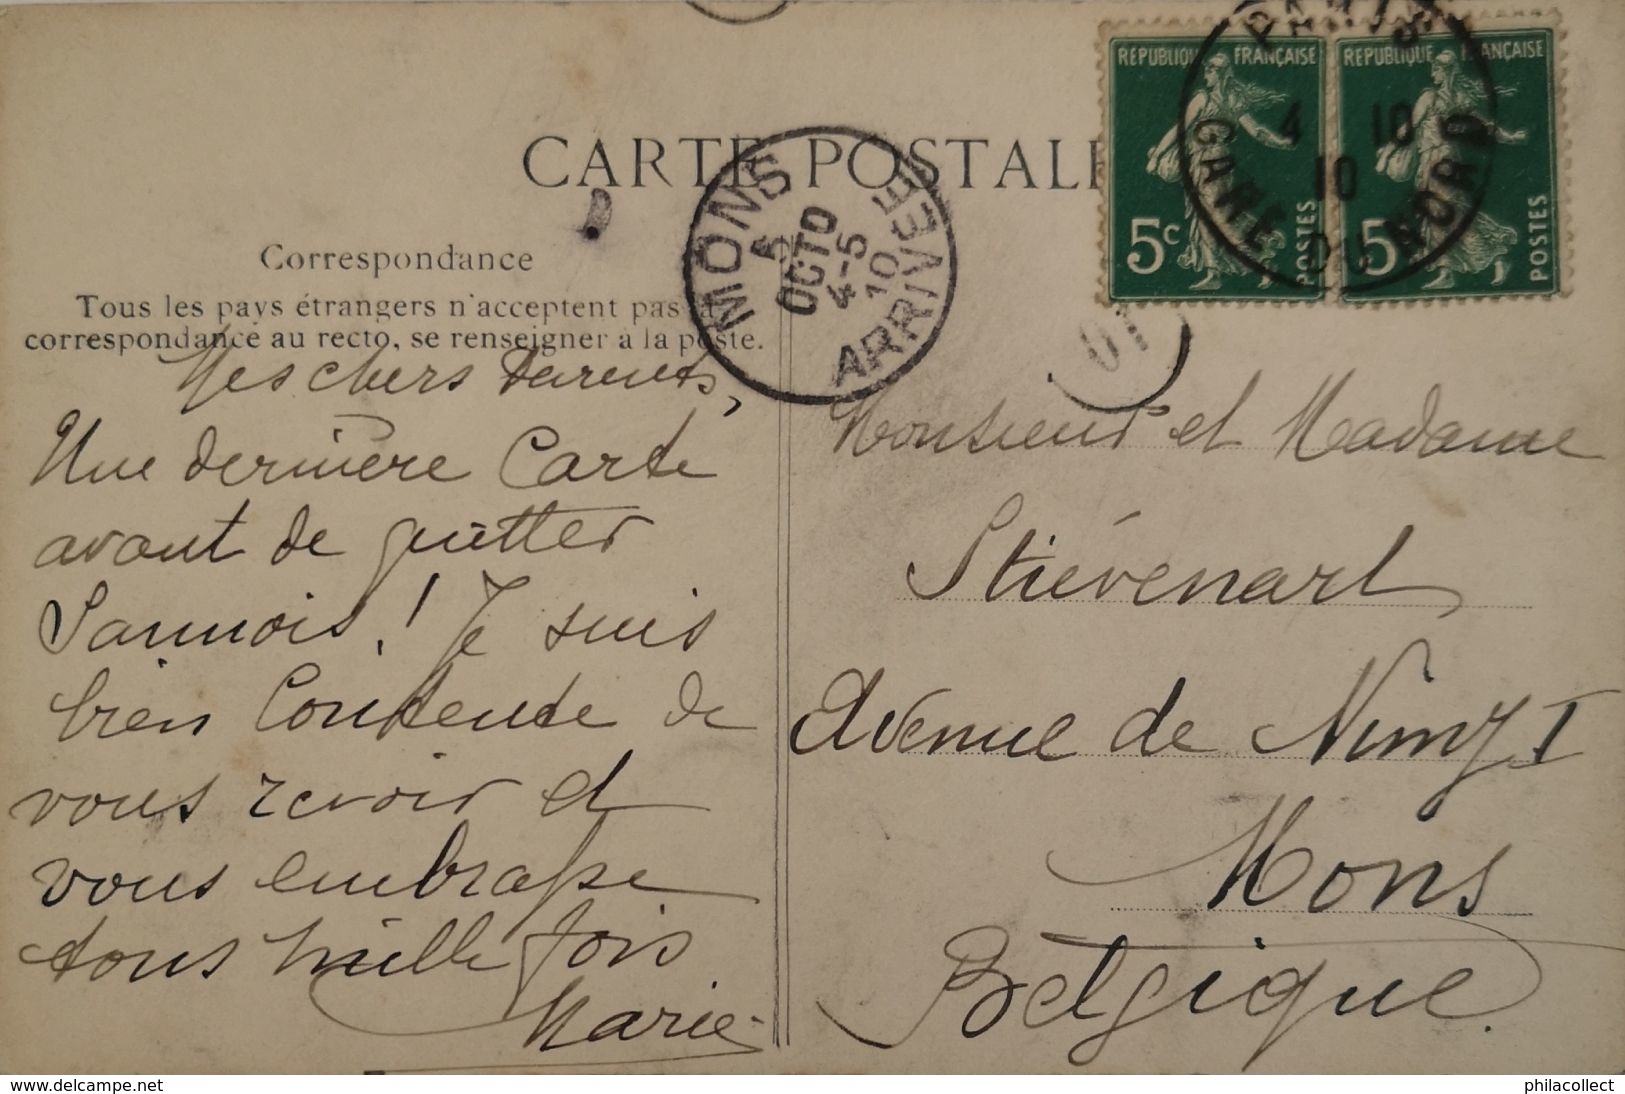 CARTE POSTALE
RÉPUBLIQUE FRANÇAISE
5c
POSTES
RÉPUBLIQUE FRANÇAISE
5
POSTES
PARIS
4 10
10
GARE DU NORD
MONS
5
OCTO
4-5
10
ARRIVEE
Correspondance
Tous les pays étrangers n'acceptent pas la
correspondance au recto, se renseigner à la poste.
Mes chers Parents,
Une dernière Carte
avant de quitter
Sannois! Je suis
bien Contente de
vous revoir et
vous embrasse
tous mille fois
Marie
Monsieur et Madame
Stiévenart
Avenue de Nimy I
Mons
Belgique.
www.delcampe.net
philacollect